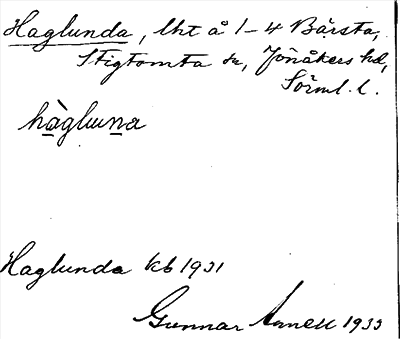 Haglunda, lht å 1-4 Bärsta,
Stigtomta sn, Jönåkers hd,
Sörml. l.
hàgluna
Haglunda kb 1931
Gunnar Arnell 1933